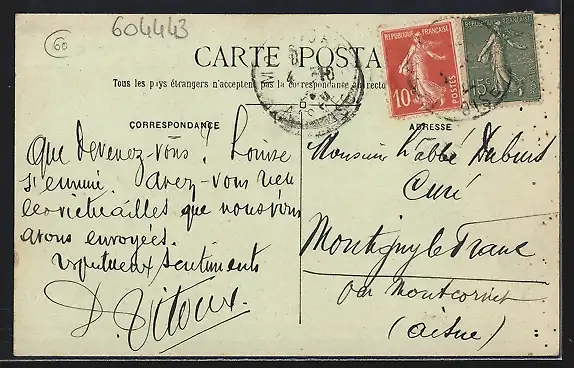 60
604443
CARTE POSTA
Tous les pays étrangers n'acceptent pas la correspondance au recto
CORRESPONDANCE
Que devenez-vous ? Louise
s'ennuie. Avez-vous reçu
les victuailles que nous vous
avons envoyées.
respectueux sentiments
D. Vitoux.
REPUBLIQUE FRANÇAISE
10
POSTES
REPUBLIQUE FRANÇAISE
15c
ADRESSE
Monsieur L'abbé Dubuis
Curé
Montigny le Franc
par Montcornet
(Aisne)